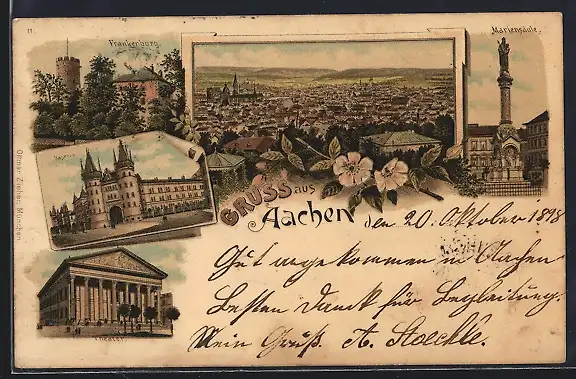 11
Frankenburg
Mariensäule.
Kaserne
Gruss aus
Aachen
den 20. Oktober 1898
Gut angekommen in Aachen
Besten Dank für Begleitung.
Mein Gruß. A. Stoeckle.
Theater
Ottmar Zieher, München